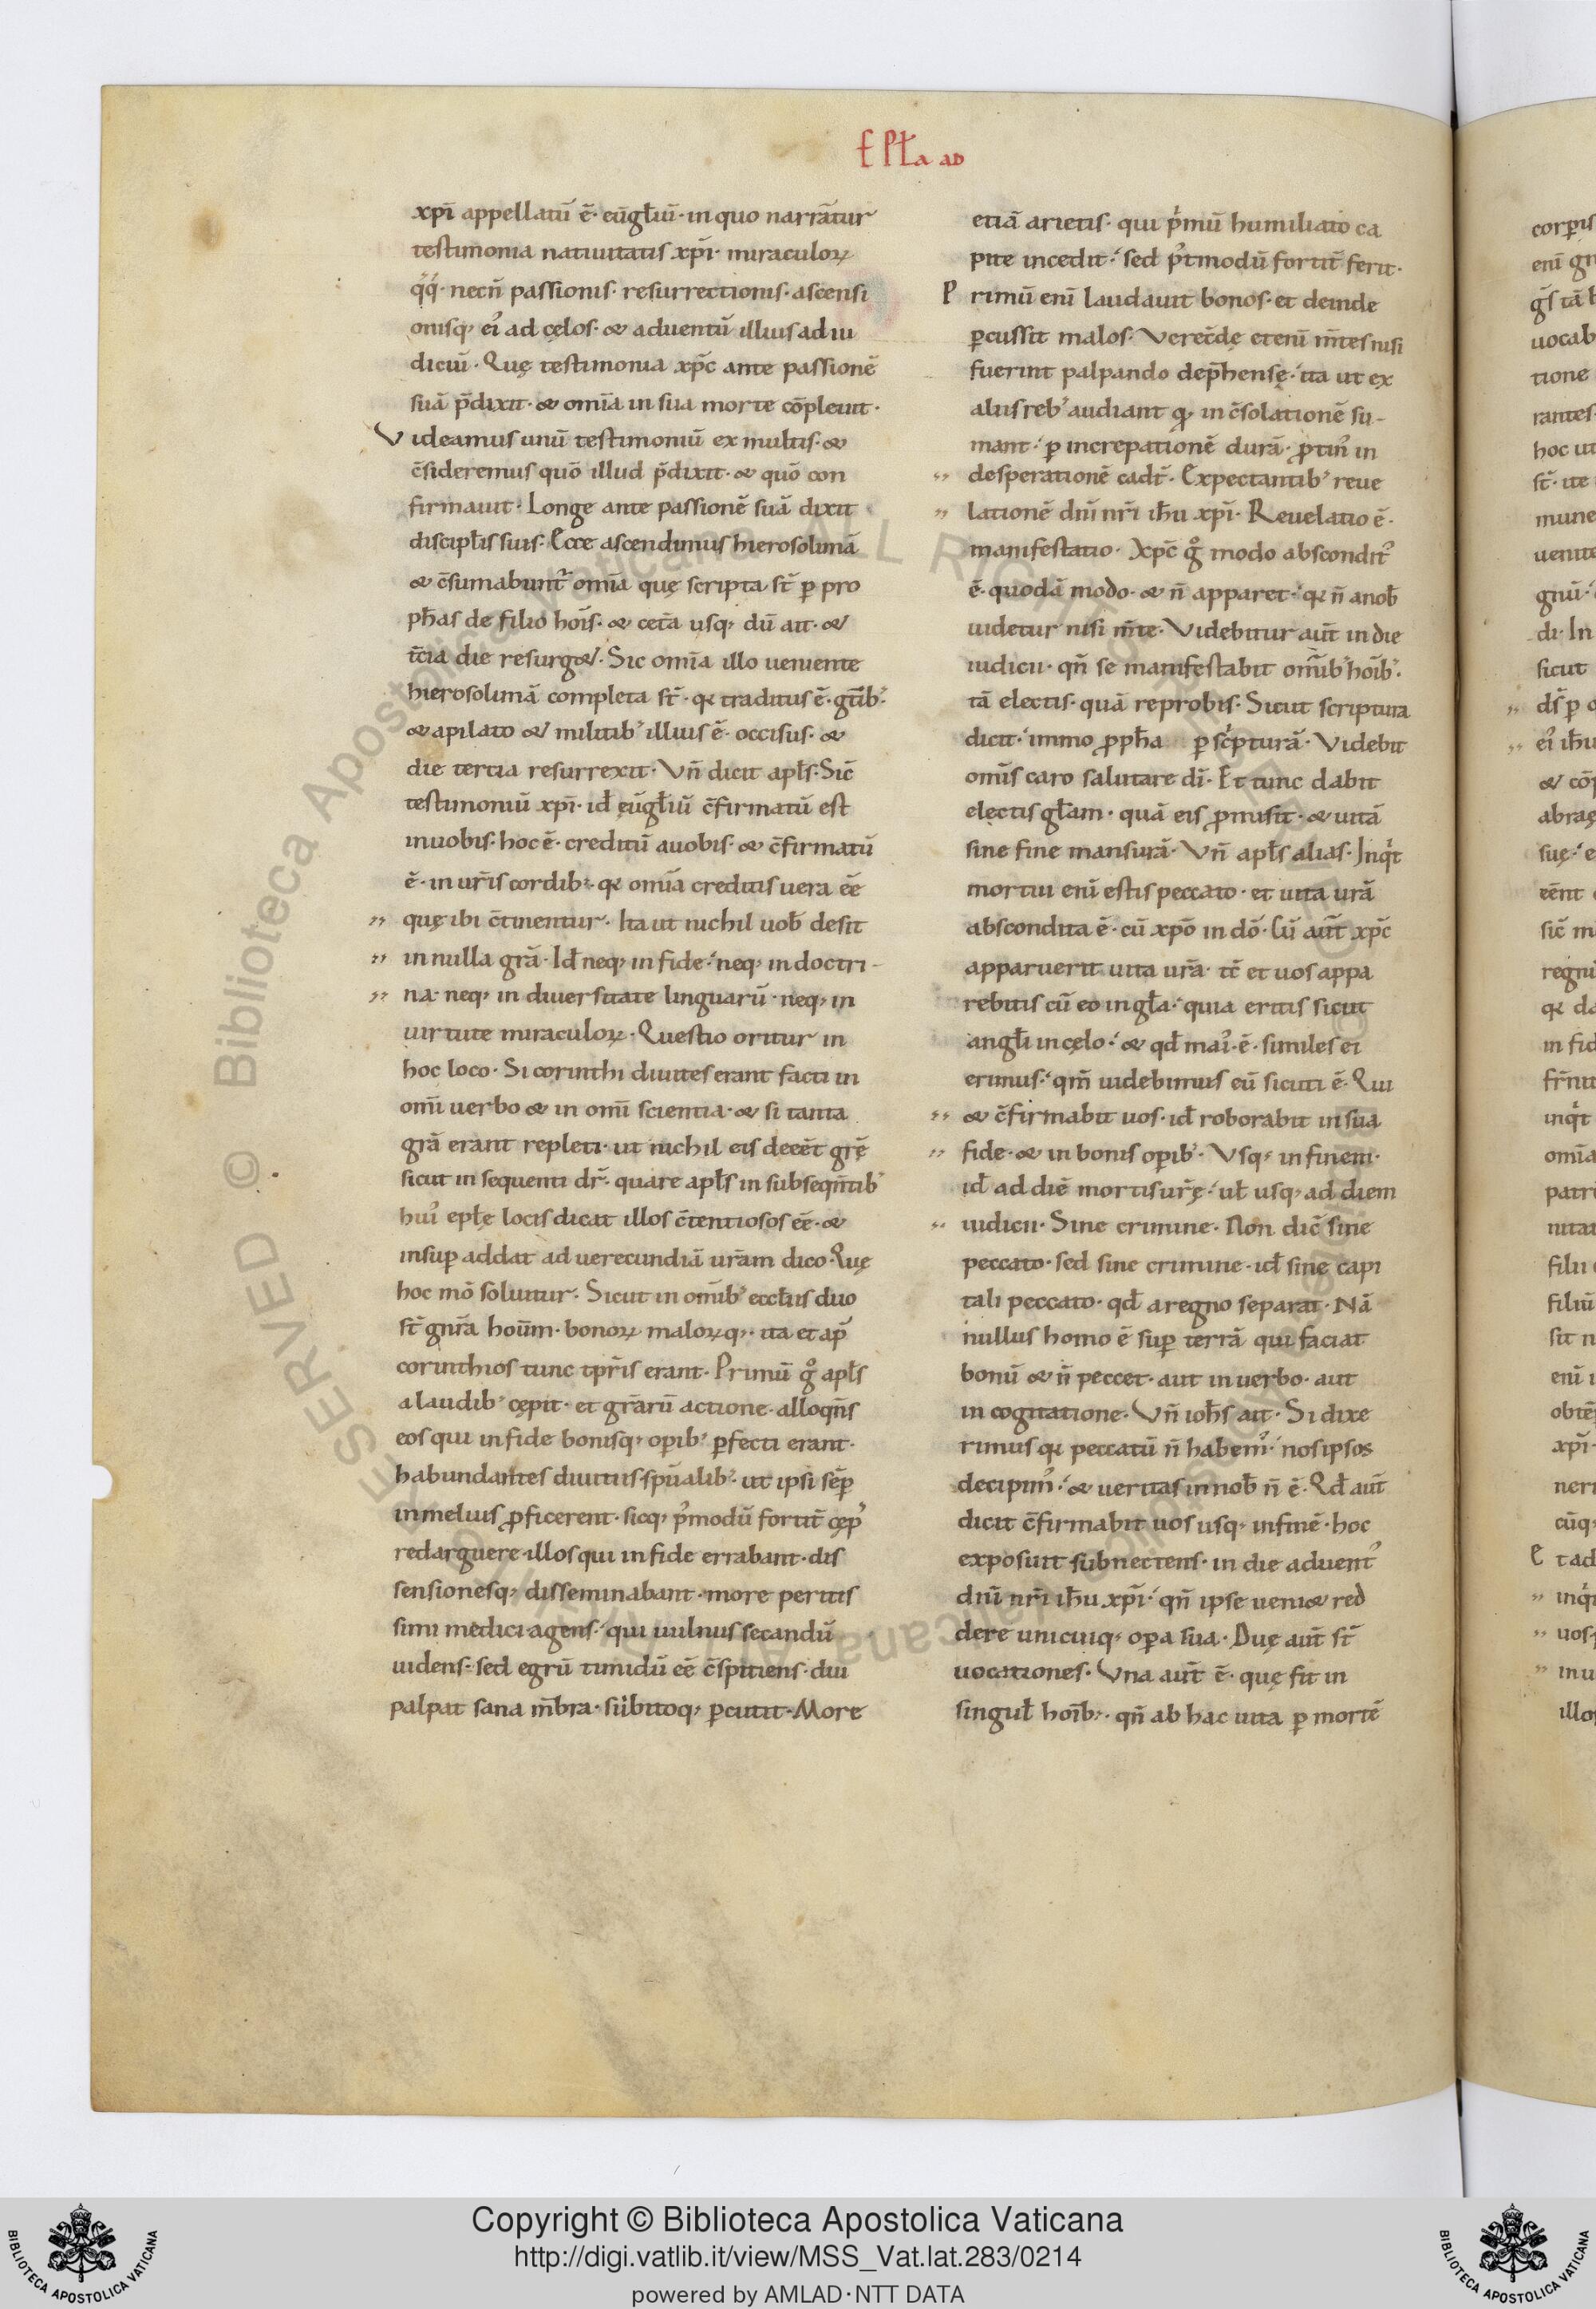 EPL̄a AD
xp̄i appellatū ē· eūgl̄iū· in quo narrātur
testimonia natiuitatis xp̄i· miraculoꝝ
q̊q̊· necn̄ passionis· resurrectionis· ascensi
onisq; ei᾽ ad cęlos· & aduentū illius ad iu
diciū· Quę testimonia xp̄c ante passionē
suā p̄dixit· & om̄ia in sua morte cōpleuit·
Videamus unū testimoniū ex multis· &
c̄sideremus quō illud p̄dixit· & quō con
firmauit· Longe ante passionē suā dixit
discipl̄is suis· Ecce ascendimus hierosolimā
& c̄sumabunt᾽ om̄ia quę scripta st̄ ꝑ pro
ph̄as de filio hoīs· & cet̄a usq; dū ait· &
t̄cia die resurg&· Sic om̄ia illo ueniente
hierosolimā completa st̄· qꝛ traditus ē· gt̄ib᾽·
& apilato & militib᾽ illius ē· occisus· &
die tertia resurrexit· Vn̄ dicit apl̄s· Sic̄
testimoniū xp̄i· id̄ eūgl̄iū c̄firmatū est
inuobis· hoc ē· creditū auobis· & c̄firmatū
ē· in ur̄is cordib;· qꝛ om̄ia creditis uera eē
,, quę ibi c̄tinentur· Ita ut nichil uob̄ desit
,, in nulla grā· Id̄ neq; in fide· neq; in doctri-
,, na· neq; in diuersitate linguarū· neq; in
uirtute miraculoꝝ· Questio oritur in
hoc loco· Si corinthi diuites erant facti in
om̄i uerbo & in om̄i scientia· & si tanta
grā erant repleti· ut nichil eis deeēt gr̄ę
sicut in sequenti dr̄· quare apl̄s in subseqn̄tib᾽
hui᾽ epl̄ę locis dicat illos c̄tentiosos eē· &
insuꝑ addat ad uerecundiā ur̄am dico· Quę
hoc mō soluitur· Sicut in om̄ib᾽ eccl̄iis duo
st̄ gn̄ra hoīum· bonoꝝ maloꝝq;· ita et ap̄
corinthios tunc tp̄ris erant· Primū g̊ apl̄s
a laudib᾽ cępit· et grārū actione· alloqn̄s
eos qui in fide bonisq; oꝑib᾽ ꝑfecti erant·
habundantes diuitiis· spūalib᾽· ut ipsi sēꝑ
in melius ꝓficerent· sicq; p᾽modū fortit̄ cęp᾽
redarguere illos qui in fide errabant· dis
sensionesq; disseminabant· more peritis
simi medici agens· qui uulnus secandū
uidens· sed egrū timidū eē c̄spitiens· diu
palpat sana m̄bra· subitoq; ꝑcutit· More
etiā arietis· qui p̍mū humiliato ca
pite incedit· sed p᾽tmodū fortit̄ ferit·
Primū enī laudauit bonos· et deinde
ꝑcussit malos· Verec̄dę etenī m̄tes nisi
fuerint palpando dep̄hensę· ita ut ex
aliis reb᾽ audiant qꝫ in c̄solationē su-
mant· ꝑ increpationē durā· ꝓtin᾽ in
,, desperationē cadt̄· Expectantib᾽ reue
,, lationē dn̄i nr̄i ih̄u xp̄i· Reuelatio ē·
manifestatio· Xp̄c g̊ modo abscondit᾽
ē· quodā modo· & n̄ apparet· qꝛ n̄ anob̄
uidetur nisi m̄te· Videbitur aut̄ in die
iudicii· qn̄ se manifestabit om̄ib᾽ hoīb᾽·
tā electis· quā reprobis· Sicut scriptura
dicit· immo ꝓph̄a ꝑ sc̍pturā· Videbit
omīs caro salutare dī· Et tunc dabit
electis gl̄am· quā eis ꝓmisit· & uitā
sine fine mansurā· Vn̄ apl̄s alias· Inq̍t
mortui enī estis peccato· et uita ur̄a
abscondita ē· cū xp̄o in dō· Cū aut̄ xp̄c
apparuerit uita ur̄a· tc̄ et uos appa
rebitis cū eo in gl̄a· quia eritis sicut
angl̄i in cęlo· & qd̄ mai᾽· ē· similes ei
erimus· qm̄ uidebimus eū sicuti ē· Qui
,, & c̄firmabit uos· id̄ roborabit in sua
,, fide· & in bonis oꝑib᾽· Vsq; in finem·
id̄ ad diē mortis ur̄ę· ul̄ usq; ad diem
,, iudicii· Sine crimine· Non dic̄ sine
peccato· sed sine crimine· id̄ sine capi
tali peccato· qd̄ a regno separat· Nā
nullus homo ē suꝑ terrā qui faciat
bonū & n̄ peccet· aut in uerbo· aut
in cogitatione· Vn̄ ioh̄s ait· Si dixe
rimus qꝛ peccatū n̄ habem᾽· nos ipsos
decipim᾽· & ueritas in nob̄ n̄ ē· Qd̄ aut̄
dicit c̄firmabit uos usq; in finē· hoc
exposuit subnectens· in die aduent᾽
dn̄i nr̄i ih̄u xp̄i· qn̄ ipse ueni& red
dere unicuiq; oꝑa sua· Duę aut̄ st̄
uocationes· Vna aut̄ ē· quę fit in
singul̄ hoīb;· qn̄ ab hac uita ꝑ mortē
Copyright © Biblioteca Apostolica Vaticana
http://digi.vatlib.it/view/MSS_Vat.lat.283/0214
powered by AMLAD·NTT DATA